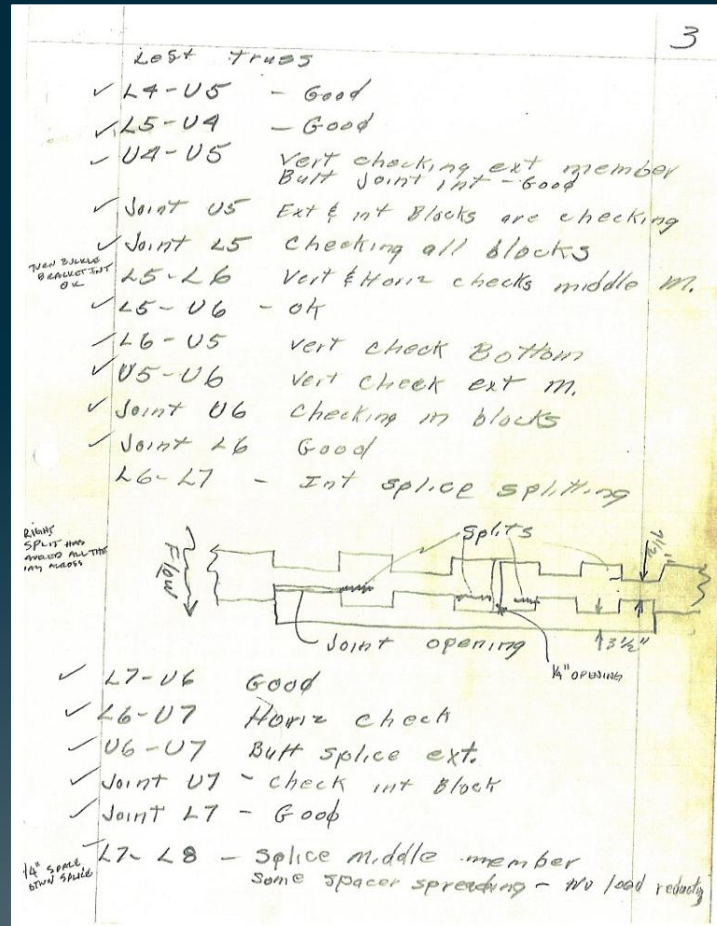 3
Left Truss
✓ L4-U5 - Good
✓ L5-U4 - Good
✓ U4-U5 Vert checking ext member
Butt Joint int - Good
✓ Joint U5 Ext & int Blocks are checking
✓ Joint L5 Checking all blocks
TURN BUCKLE
BRACKET INT
OK
L5-L6 Vert & Horiz checks middle m.
✓ L5-U6 - OK
✓ L6-U5 Vert check Bottom
✓ U5-U6 Vert check ext m.
✓ Joint U6 Checking in blocks
✓ Joint L6 Good
L6-L7 - Int splice splitting
RIGHT
SPLIT HAS
ALL THE
ACROSS
Flow
Splits
7 1/2"
Joint opening
3 1/2"
1/4" OPENING
✓ L7-U6 Good
✓ L6-U7 Horiz check
✓ U6-U7 Butt splice ext.
✓ Joint U7 - check int Block
✓ Joint L7 - Good
L7-L8 - Splice middle member
1/4" SPACE
BTWN SPLICE
Some spacer spreading - No load